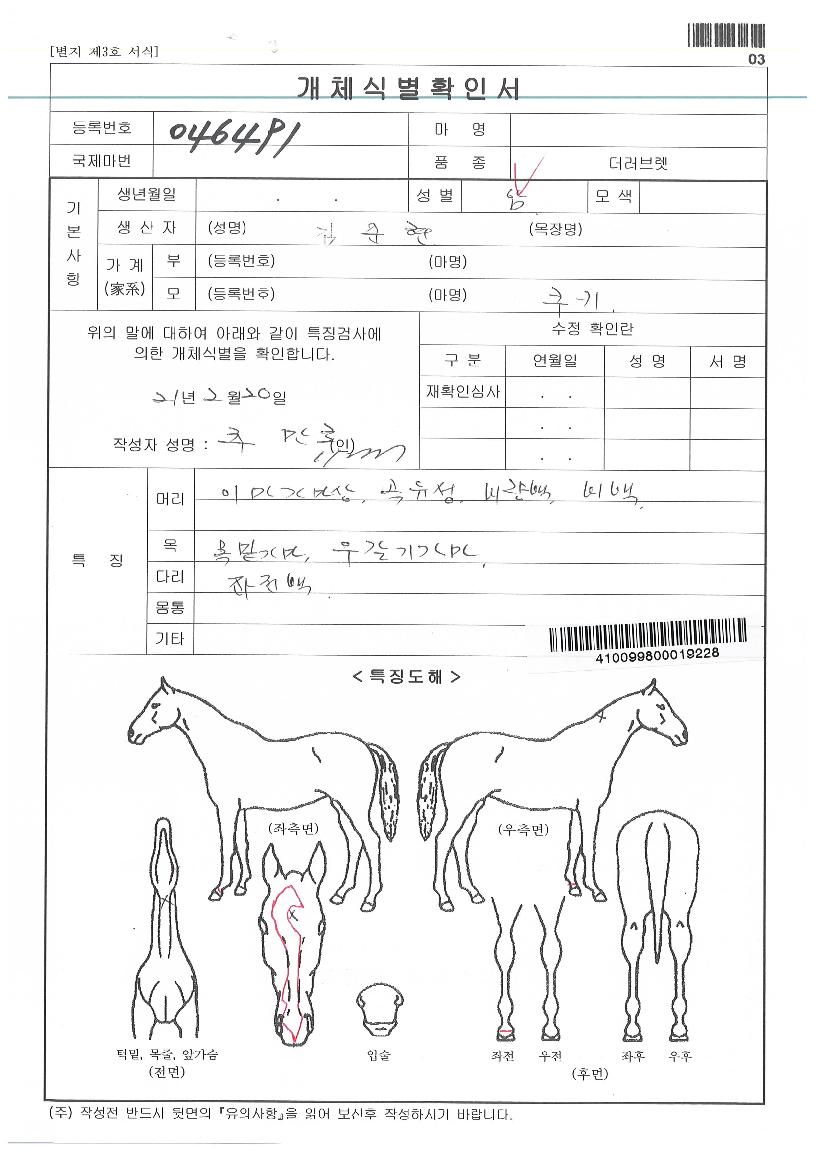 [별지 제3호 서식]
03
개체식별확인서
등록번호 046491 마 명
국제마번 품 종 더러브렛
기본사항
생년월일 . . 성별 암 모색
생 산 자 (성명) 김 준 현 (목장명)
가 계 (家系)
부 (등록번호) (마명)
모 (등록번호) (마명) 추기.
위의 말에 대하여 아래와 같이 특징검사에
의한 개체식별을 확인합니다.
21년 2월 20일
작성자 성명 : (인)
수정 확인란
구 분 연월일 성 명 서 명
재확인심사 . .
. .
. .
특 징
머리 비백.
목 목밑가마,
다리 좌전백
몸통
기타
410099800019228
< 특징도해 >
(좌측면) (우측면)
턱밑, 목줄, 앞가슴 입술 좌전 우전 좌후 우후
(전면) (후면)
(주) 작성전 반드시 뒷면의 『유의사항』을 읽어 보신후 작성하시기 바랍니다.